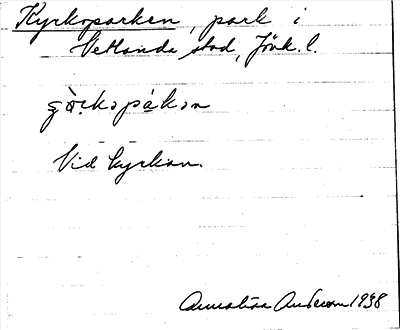 Kyrkoparken, park i
Vetlanda stad, Jönk. l.
Vid kyrkan.
Annalisa Anderson 1938